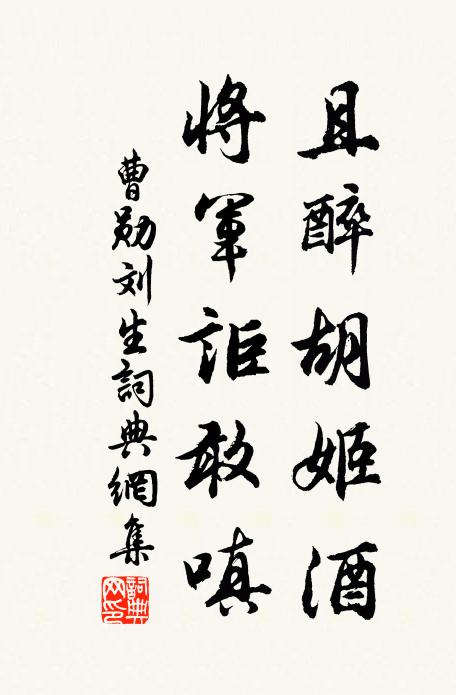 且醉胡姬酒
將軍詎敢嗔
曹勛刘生詞典網集
詞典网印